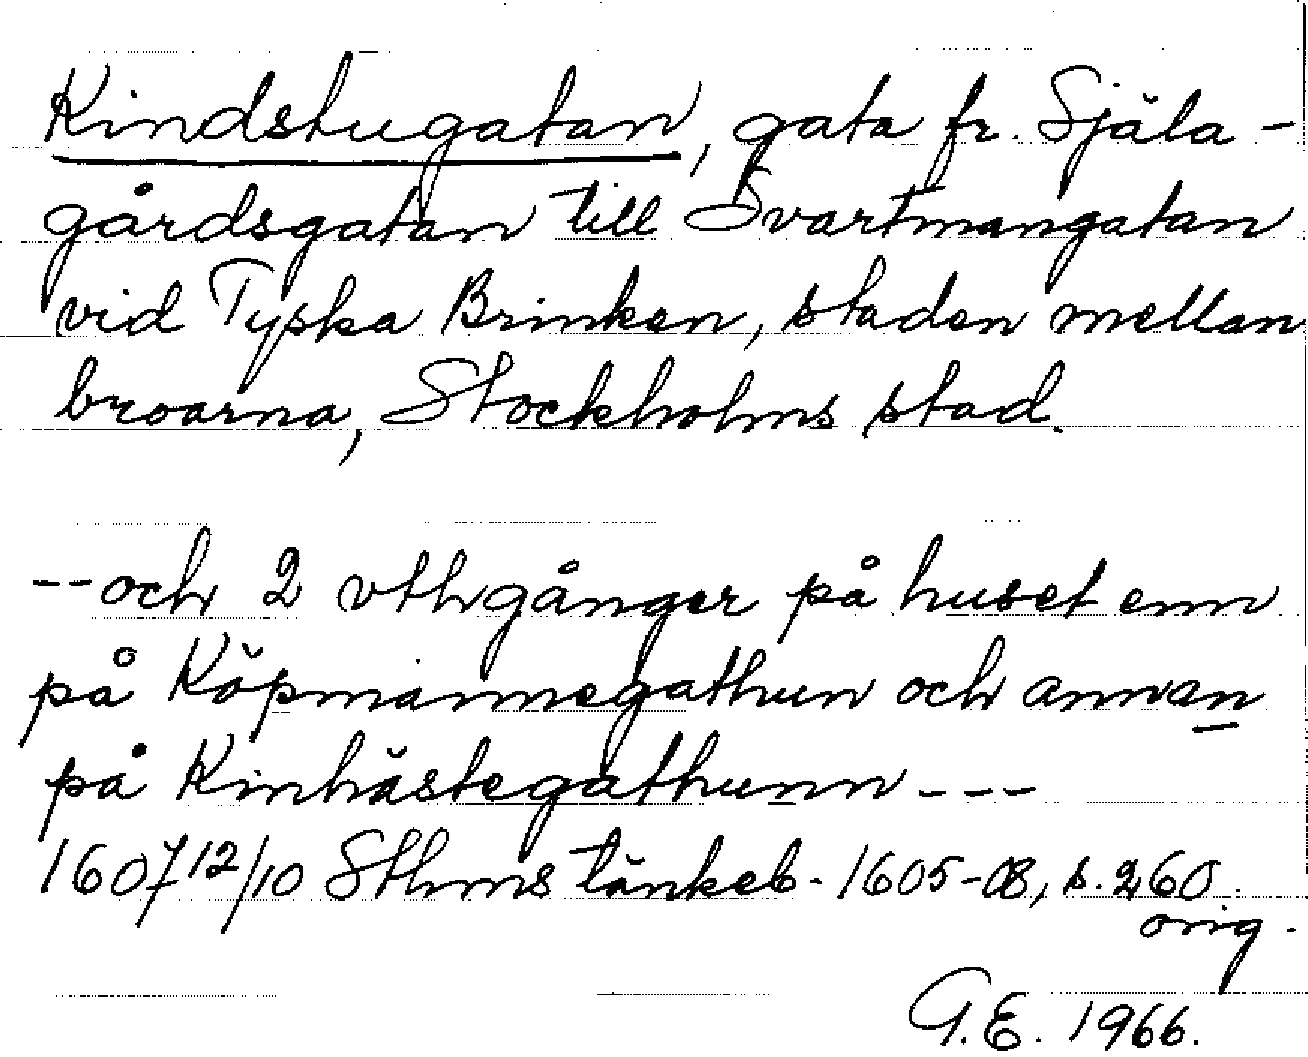 Kindstugatan, gata fr. Själa-
gårdsgatan till Svartmangatan
vid Tyska Brinken, staden mellan
broarna, Stockholms stad.
--och 2 vthgånger på huset enn
på Köpmannegathun och annen
på Kinhästegathunn ---
1607 12/10 Sthms tänkeb. 1605-08, s. 260
orig.
G.E. 1966.